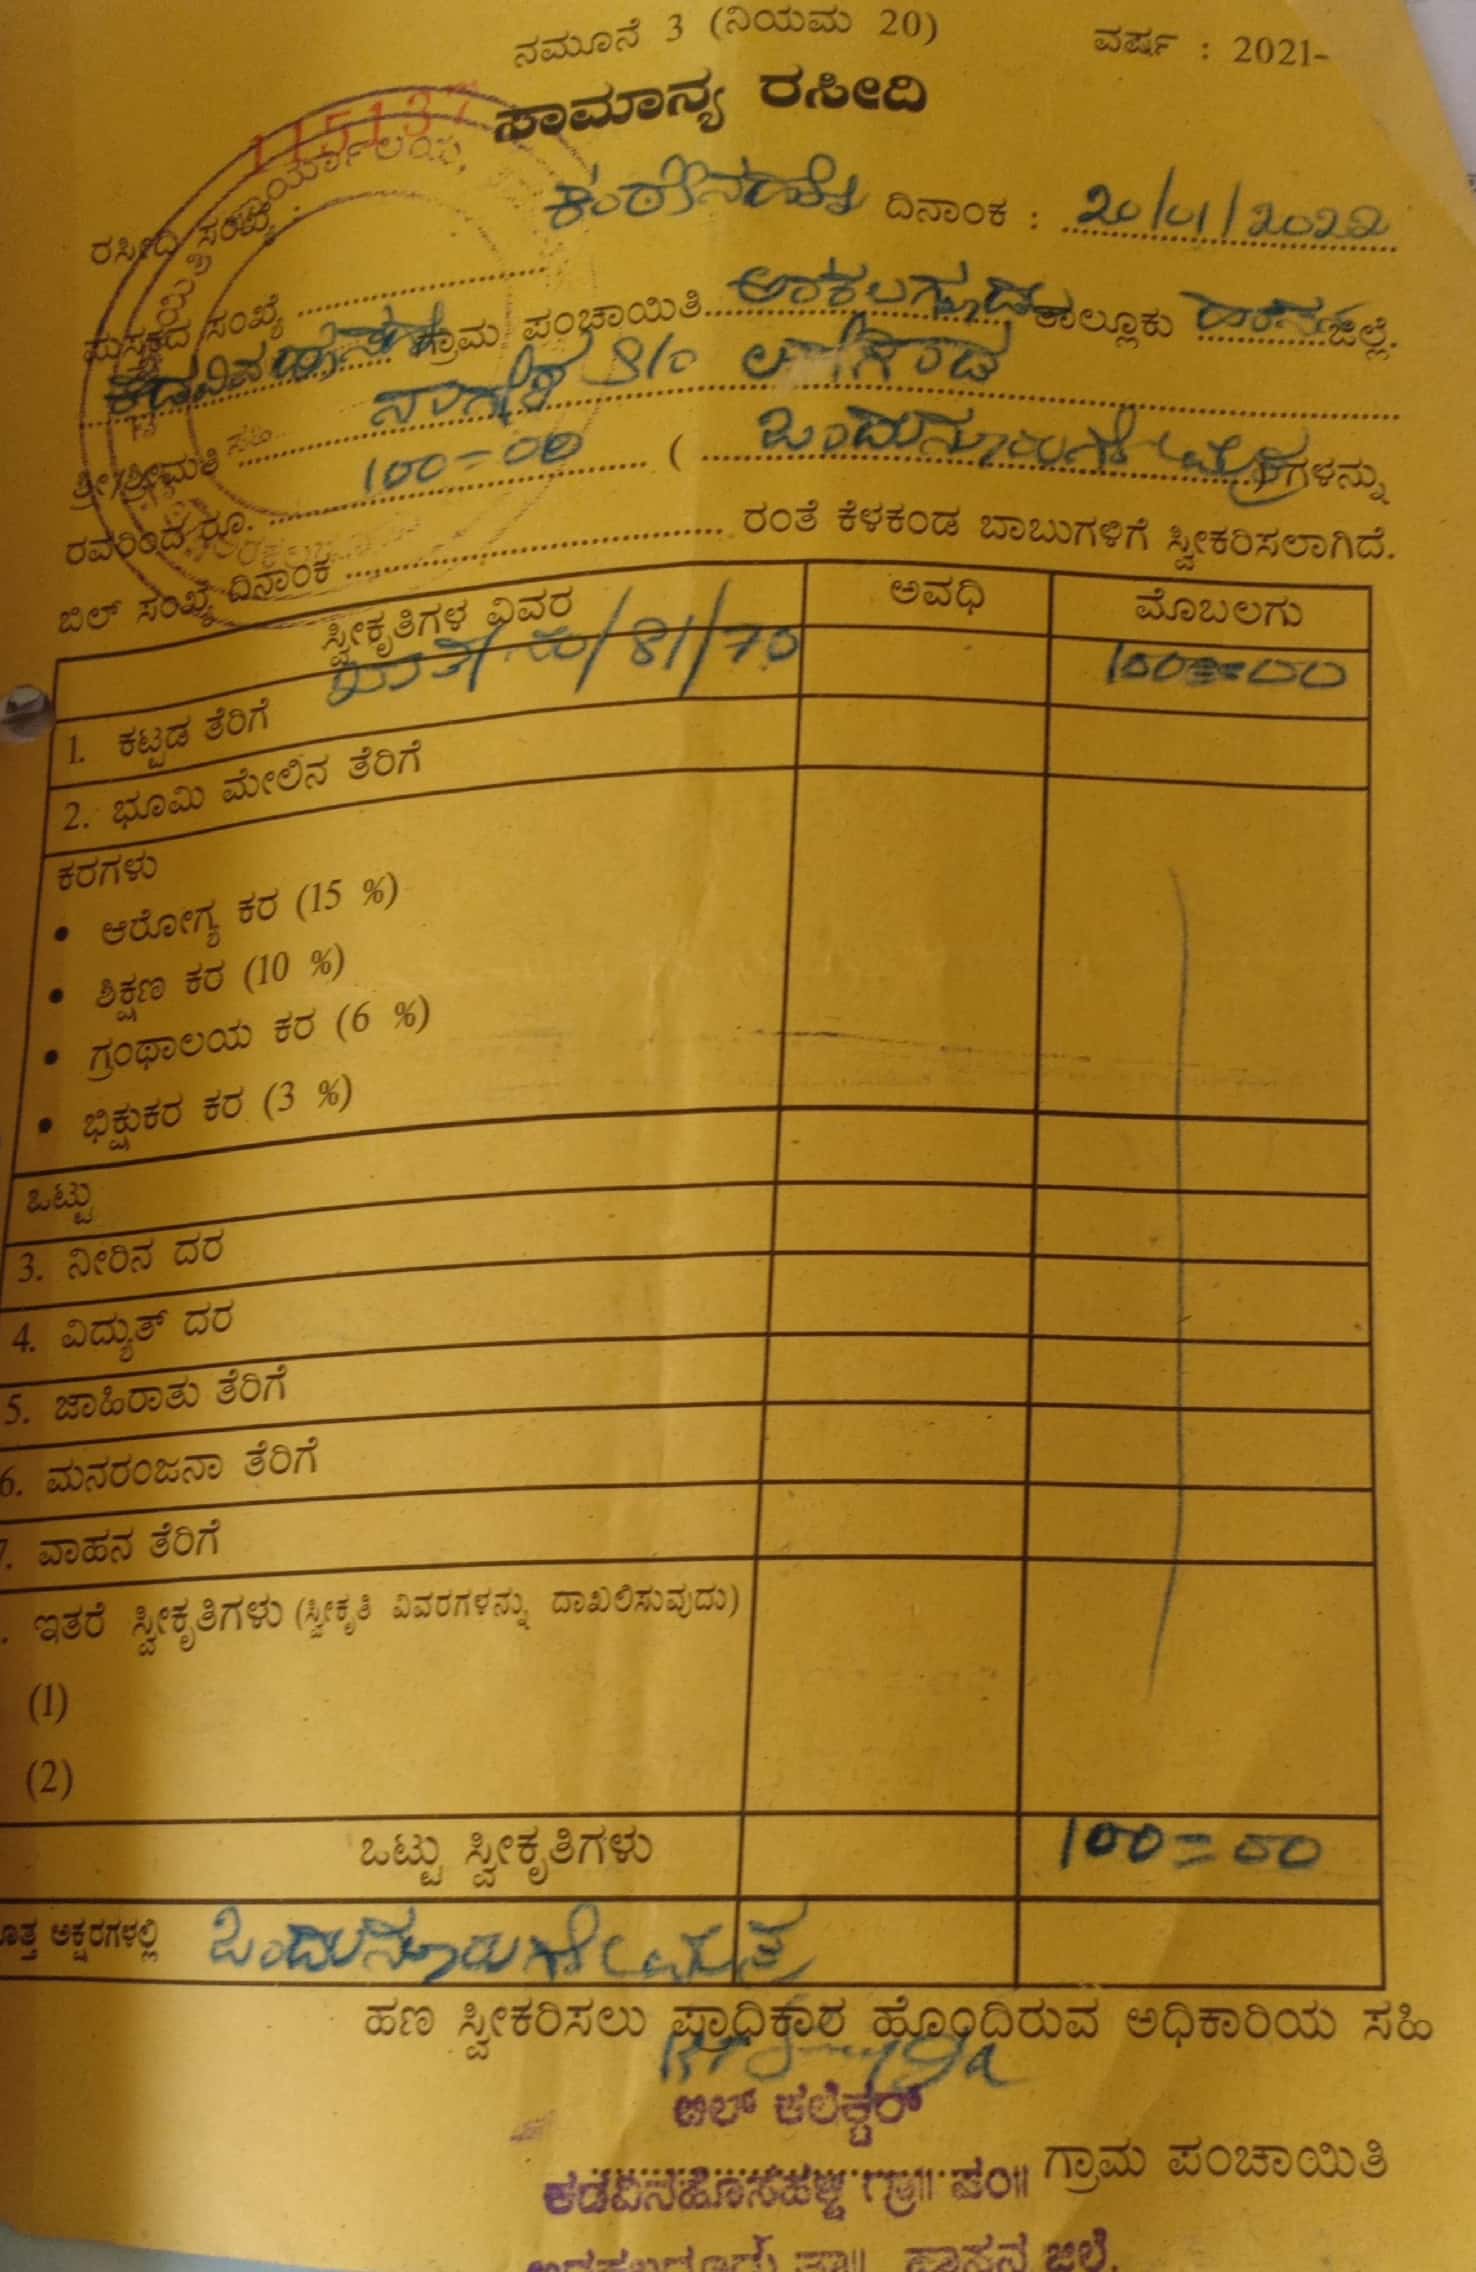 ನಮೂನೆ 3 (ನಿಯಮ 20) ವರ್ಷ : 2021-
ಸಾಮಾನ್ಯ ರಸೀದಿ
115137
ರಸೀದಿ ಸಂಖ್ಯೆ : ದಿನಾಂಕ : 20/01/2022
ಪುಸ್ತಕದ ಸಂಖ್ಯೆ
ಗ್ರಾಮ ಪಂಚಾಯಿತಿ ತಾಲ್ಲೂಕು ಜಿಲ್ಲೆ.
ಶ್ರೀ/ಶ್ರೀಮತಿ
ರವರಿಂದ ರೂ. 100=00 ( ಒಂದು ನೂರು ) ಗಳನ್ನು
ಬಿಲ್ ಸಂಖ್ಯೆ ದಿನಾಂಕ ರಂತೆ ಕೆಳಕಂಡ ಬಾಬುಗಳಿಗೆ ಸ್ವೀಕರಿಸಲಾಗಿದೆ.
ಸ್ವೀಕೃತಿಗಳ ವಿವರ ಅವಧಿ ಮೊಬಲಗು
/81/70 100=00
1. ಕಟ್ಟಡ ತೆರಿಗೆ
2. ಭೂಮಿ ಮೇಲಿನ ತೆರಿಗೆ
ಕರಗಳು
• ಆರೋಗ್ಯ ಕರ (15 %)
• ಶಿಕ್ಷಣ ಕರ (10 %)
• ಗ್ರಂಥಾಲಯ ಕರ (6 %)
• ಭಿಕ್ಷುಕರ ಕರ (3 %)
ಒಟ್ಟು
3. ನೀರಿನ ದರ
4. ವಿದ್ಯುತ್ ದರ
5. ಜಾಹಿರಾತು ತೆರಿಗೆ
6. ಮನರಂಜನಾ ತೆರಿಗೆ
7. ವಾಹನ ತೆರಿಗೆ
. ಇತರೆ ಸ್ವೀಕೃತಿಗಳು (ಸ್ವೀಕೃತಿ ವಿವರಗಳನ್ನು ದಾಖಲಿಸುವುದು)
(1)
(2)
ಒಟ್ಟು ಸ್ವೀಕೃತಿಗಳು 100=00
ಅಕ್ಷರಗಳಲ್ಲಿ ಒಂದು ನೂರು
ಹಣ ಸ್ವೀಕರಿಸಲು ಪ್ರಾಧಿಕಾರ ಹೊಂದಿರುವ ಅಧಿಕಾರಿಯ ಸಹಿ
ಬಿಲ್ ಕಲೆಕ್ಟರ್
ಕಡವಿನಹೊಸಹಳ್ಳಿ ಗ್ರಾ॥ ಪಂ॥ ಗ್ರಾಮ ಪಂಚಾಯಿತಿ
ತಾ॥ ಹಾಸನ ಜಿಲ್ಲೆ.